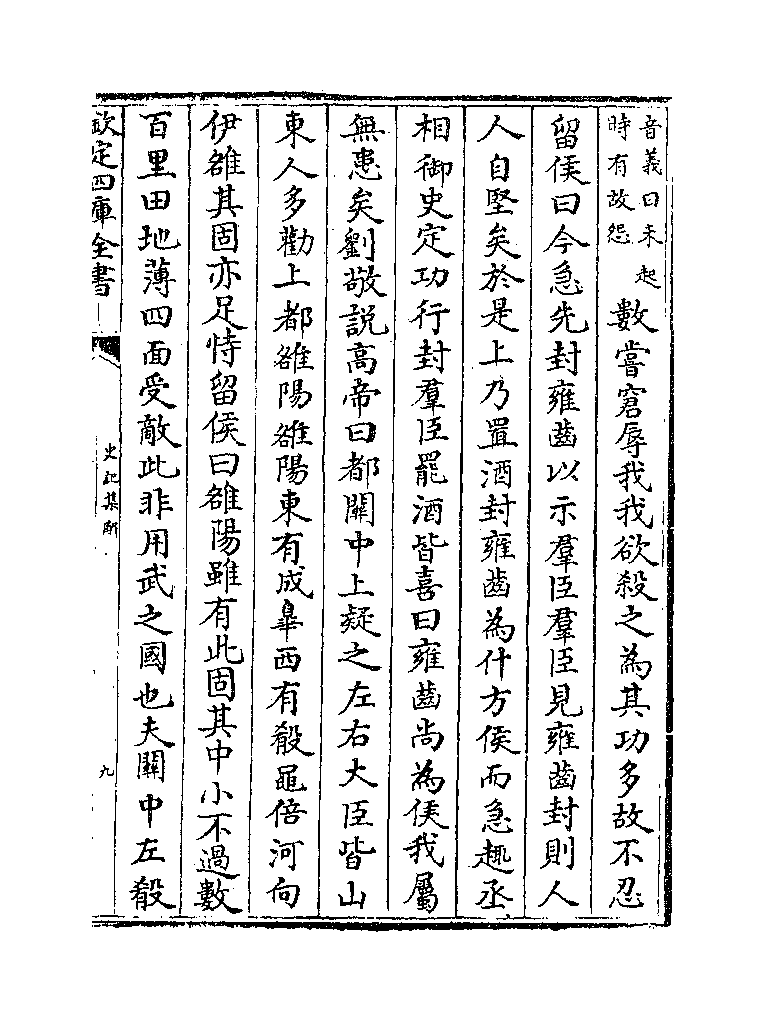 音義曰未起
時有故怨
數嘗窘辱我我欲殺之為其功多故不忍
留侯曰今急先封雍齒以示羣臣羣臣見雍齒封則人
人自堅矣於是上乃置酒封雍齒為什方侯而急趣丞
相御史定功行封羣臣罷酒皆喜曰雍齒尚為侯我屬
無患矣劉敬說高帝曰都關中上疑之左右大臣皆山
東人多勸上都雒陽雒陽東有成皐西有殽黽倍河向
伊雒其固亦足恃留侯曰雒陽雖有此固其中小不過數
百里田地薄四面受敵此非用武之國也夫關中左殽
欽定四庫全書
史記集解
九